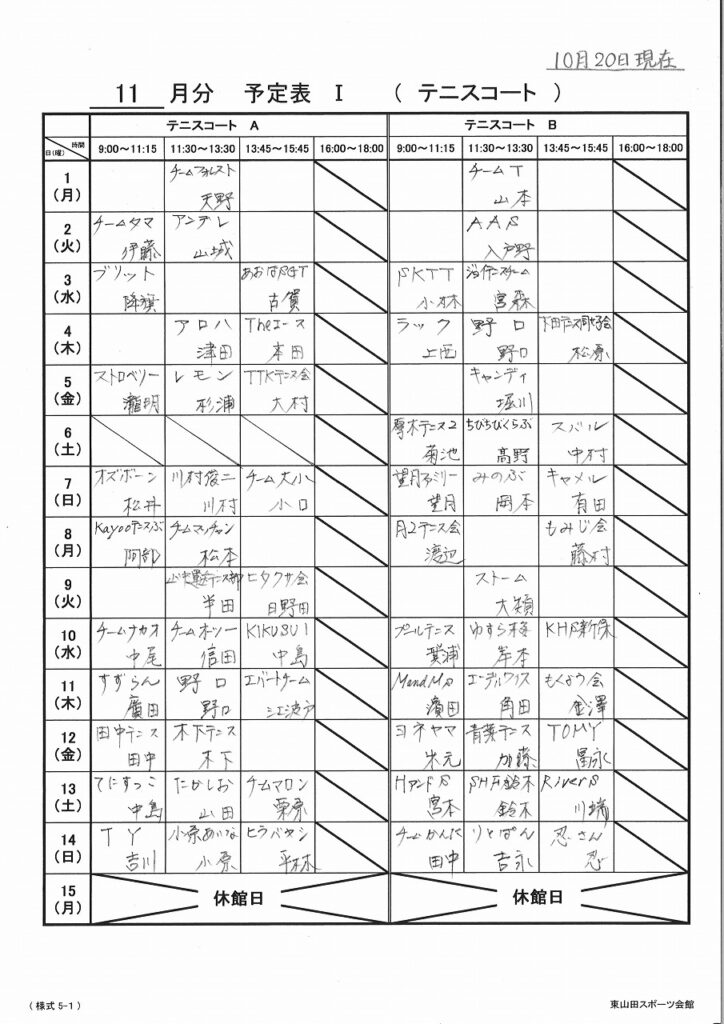 10月20日現在
11 月分 予定表 Ⅰ ( テニスコート )
テニスコート A テニスコート B
時間 日(曜) 9:00～11:15 11:30～13:30 13:45～15:45 16:00～18:00 9:00～11:15 11:30～13:30 13:45～15:45 16:00～18:00
1 チームフォレスト チームT
(月) 天野 山本
2 チームタマ アンデレ AAS
(火) 伊藤 山城 入戸野
3 ブリット SKTT
(水) 降旗 古賀 小林 宮森
4 アロハ Theエース ラック 野口 下田テニス同好会
(木) 津田 本田 上西 野口 松原
5 ストロベリー レモン TTKテニス会 キャンディ
(金) 瀧明 杉浦 大村 堀川
6 厚木テニス2 ちびちびくらぶ スバル
(土) 菊池 髙野 中村
7 オズボーン 川村俊二 チーム大小 望月ファミリー みのぶ キャメル
(日) 松井 川村 小口 望月 岡本 有田
8 Kayooテニスぶ チームマッチャン 月2テニス会 もみじ会
(月) 阿部 松本 渡辺 藤村
9 ヒタクサ会 ストーム
(火) 半田 日野田 大穎
10 チームナカオ チームホッソー KIKUSUI プールテニス ゆすら梅 KHS新保
(水) 中尾 信田 中島 箕浦 岸本
11 すずらん 野口 エバートチーム MandMs エーデルワイス もくよう会
(木) 廣田 野口 江波戸 濱田 角田 金澤
12 田中テニス 木下テニス ヨネヤマ 青葉テニス TOMY
(金) 田中 木下 米元 加藤 冨永
13 てにすっこ たかしお チームマロン HandS SH戸鈴木 RiverS
(土) 中島 山田 栗原 宮本 鈴木 川端
14 TY 小原あいな ヒラバヤシ チームかんた りとぱん 忍さん
(日) 吉川 小原 平林 田中 吉永 忍
15 休館日 休館日
(月)
( 様式 5-1 ) 東山田スポーツ会館